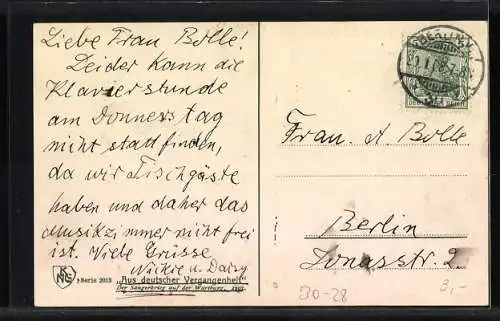 Liebe Frau Bolle!
Leider kann die
Klavierstunde
am Donnerstag
nicht stattfinden,
da wir Tischgäste
haben und daher das
Musikzimmer nicht frei
ist. Viele Grüsse
Wickie u. Daisy
Serie 2013 „Aus deutscher Vergangenheit"
Der Sängerkrieg auf der Wartburg. 1207
BERLIN
Frau A Bolle
Berlin
Jonasstr. 2.
30-28
3,-